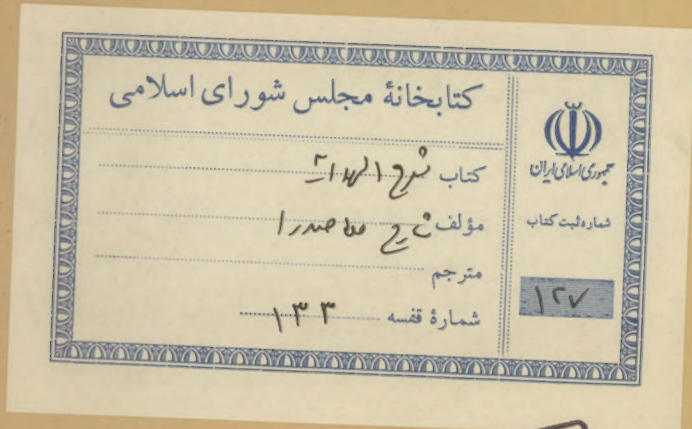 کتابخانهٔ مجلس شورای اسلامی
کتاب شرح الهدایه
مؤلف شارح ملاصدرا
مترجم
شمارهٔ قفسه ۱۳۳
جمهوری اسلامی ایران
شماره ثبت کتاب
۱۲۷